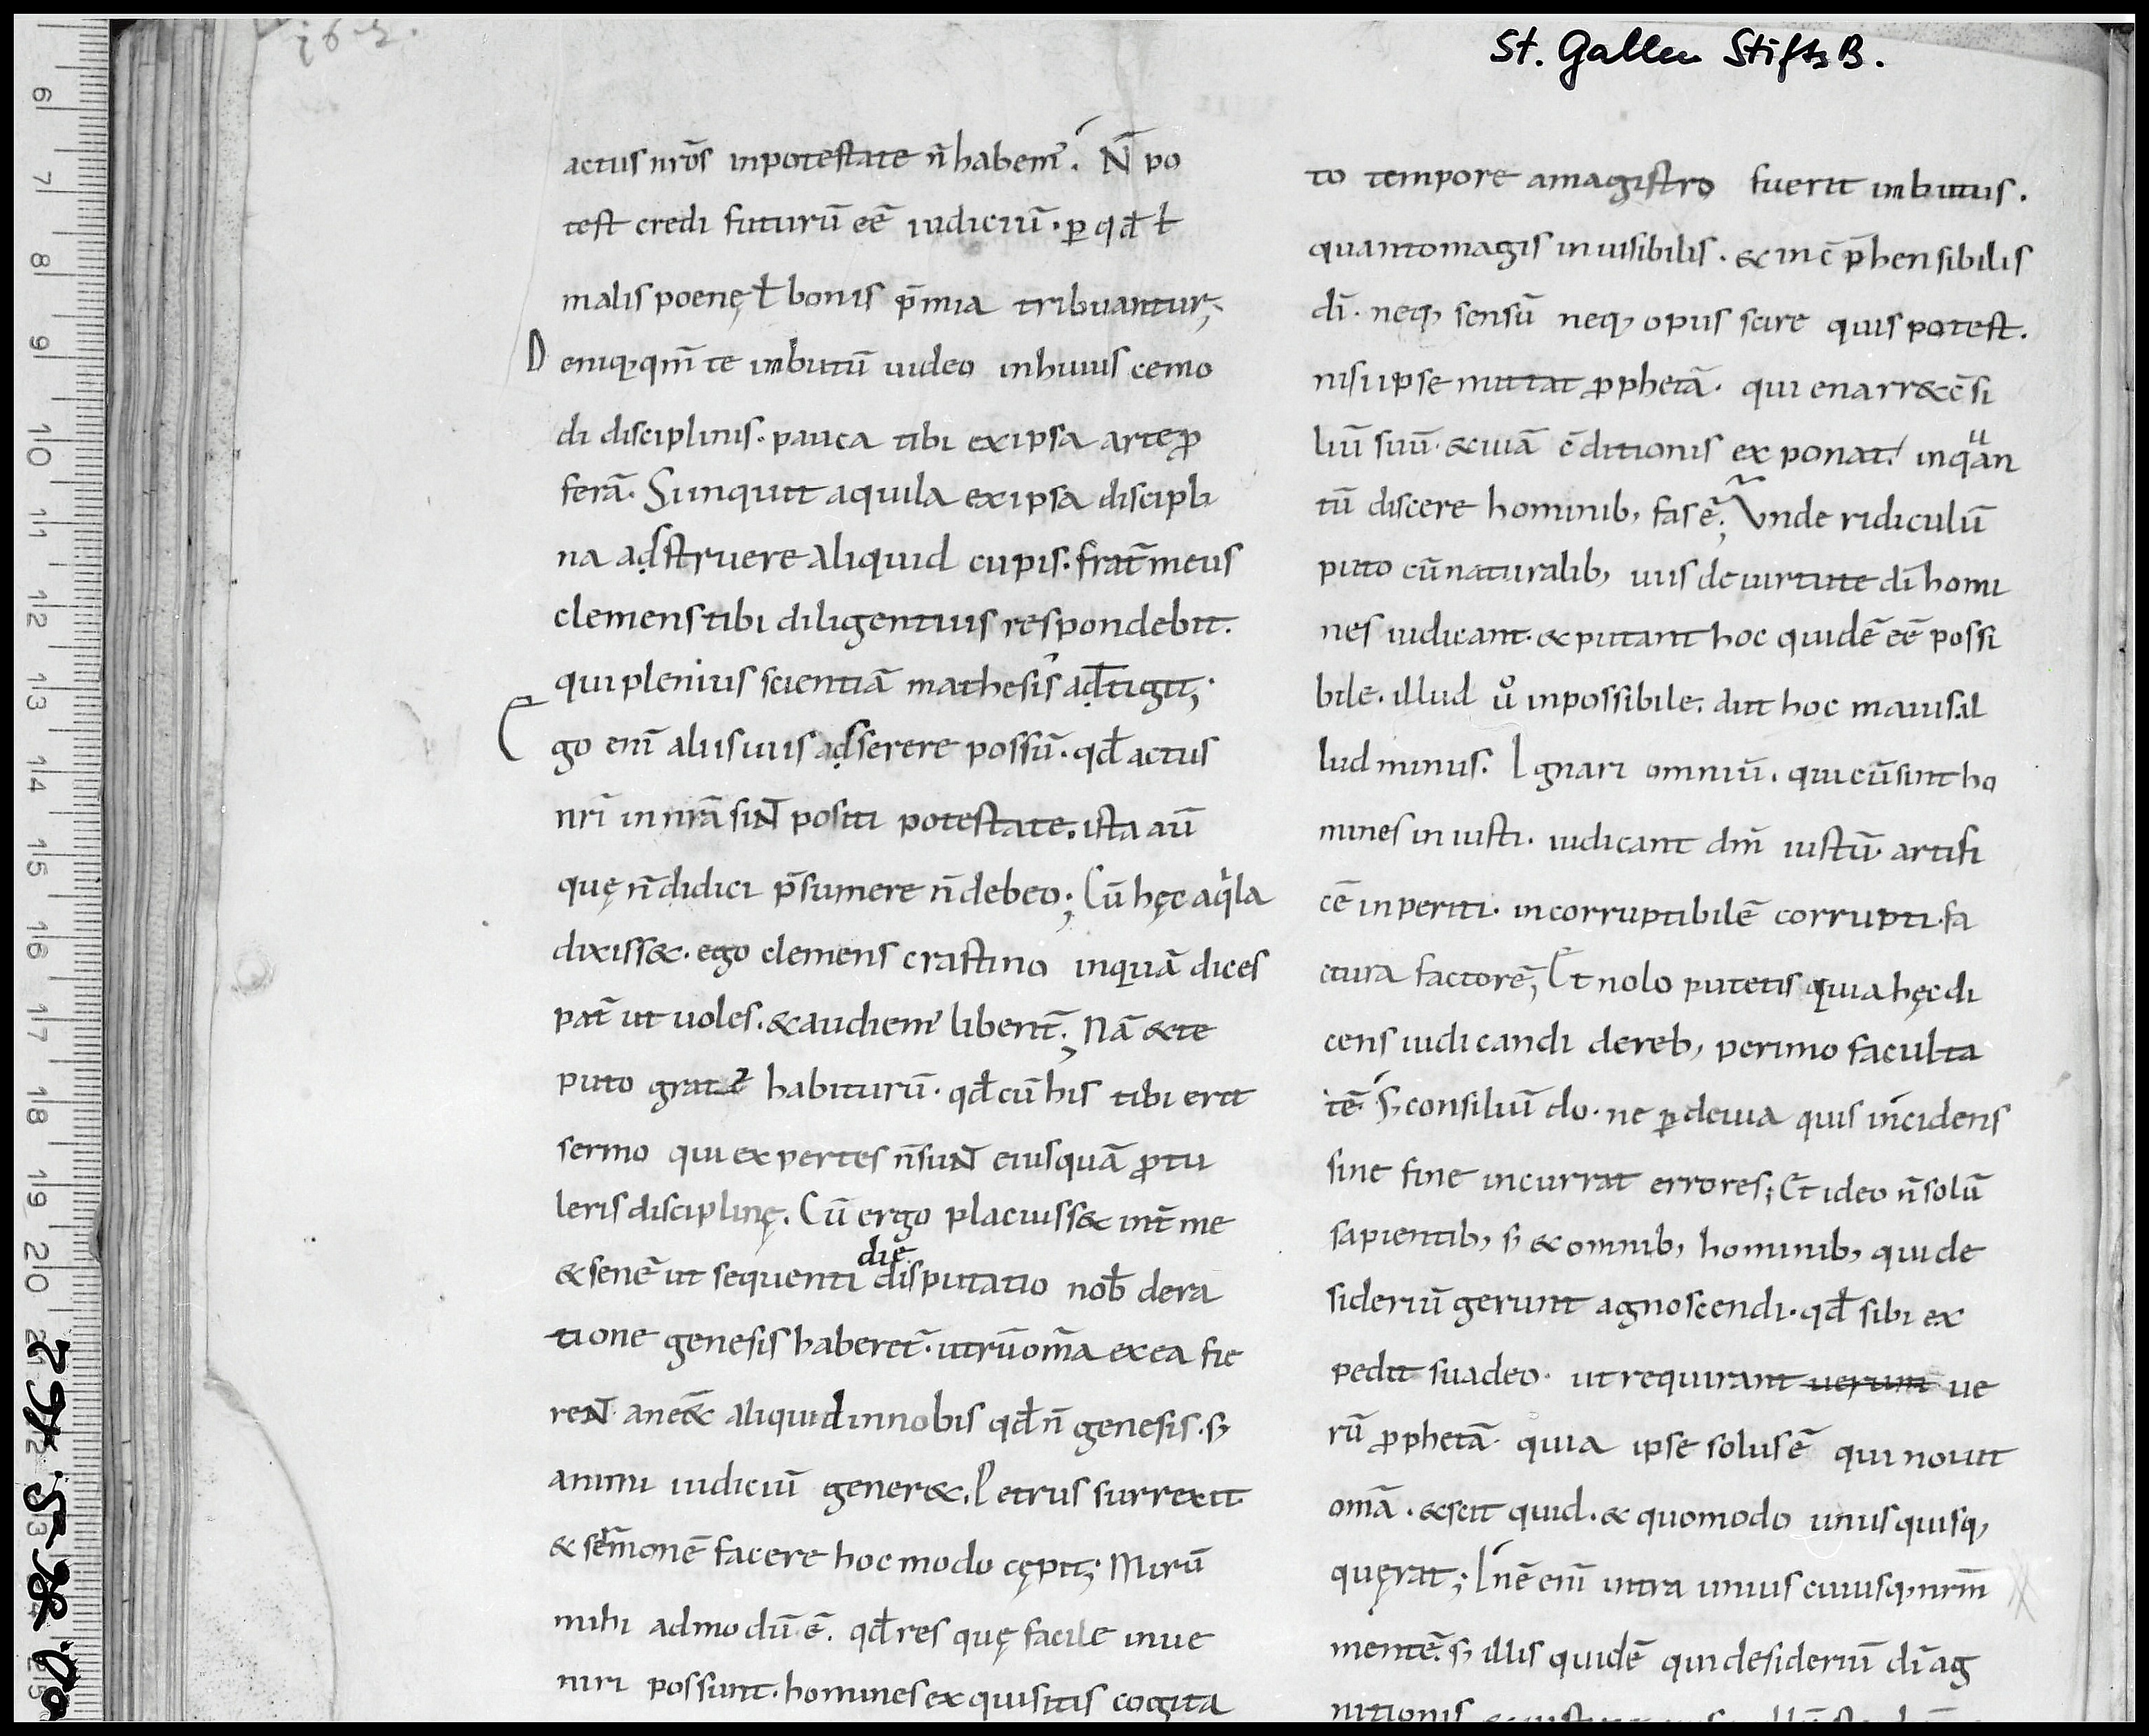 162.
St. Gallen StiftsB.
actus nrōs inpotestate n̄ habem᾿. N̄ po
test credi futurū eē iudiciū · ꝑ qđ ł
malis poenę ł bonis p̄mia tribuantur;
Deniq; qm̄ te inbutū uideo inhuius cemo
di disciplinis · pauca tibi ex ipsa arte ꝓ
ferā. Sunquit aquila ex ipsa discipli
na adstruere aliquid cupis · frat̄ meus
clemens tibi diligentius respondebit.
qui plenius scientiā mathesis adtigit;
Ego eni᷄ aliis uiis adserere possū · qđ actus
nr̄i in nrā sint positi potestate. ista aū
quę n̄ didici p̄sumere n̄ debeo; Cū hęc aqͥla
dixiss& · ego clemens crastino inquā dices
pat̄ ut uoles. & audiem᾿ libent̄; Nā & te
puto grat habiturū · qđ cū his tibi erit
sermo qui expertes n̄ sunt eius quā ꝓtu
leris disciplinę. Cū ergo placuiss& int̄ me
& senē ut sequenti die disputatio nob̄ dera
tione genesis haberet̄ · utrū om̄a ex ea fie
rent an e& aliquid in nobis qđ n̄ genesis · s;
animi iudiciū gener&. Petrus surrexit
& sermonē facere hoc modo cępit; Mirū
mihi admodū ē. qđ res quę facile inue
niri possunt · homines exquisitis cogita
to tempore amagistro fuerit inbutus.
quantomagis inuisibilis · & inc̄p̄hensibilis
dī · neq; sensū neq; opus scire quis potest.
nisi ipse mittat ꝓphetā · qui enarr& c̄si
liū suū · & uiā c̄ditionis exponat. inqͣan
tū discere hominib; fas ē; Unde ridiculū
puto cū naturalib; uiis de uirtute dī homi
nes iudicant · & putant hoc quidē eē possi
bile · illud uͦ inpossibile. aut hoc maius · il
lud minus. Ignari omniū. qui cū sint ho
mines iniusti · iudicant dm̄ iustū artifi
cē inperiti · incorruptibilē corrupti · fa
ctura factorē; Et nolo putetis quia hęc di
cens iudicandi dereb; perimo faculta
tē. S; consiliū do · ne ꝑ deuia quis incidens
sine fine incurrat errores; Et ideo n̄ solū
sapientib; s; & omnib; hominib; qui de
sideriū gerunt agnoscendi · qđ sibi ex
pedit suadeo · ut requirant uerum ue
rū ꝓphetā · quia ipse solus ē qui nouit
om̄a · & scit quid · & quomodo unusquisq;
quęrat; Inē eni᷄ intra unius cuiusq; nrm̄
mentē. s; illis quidē qui desideriū dī ag
nitionis